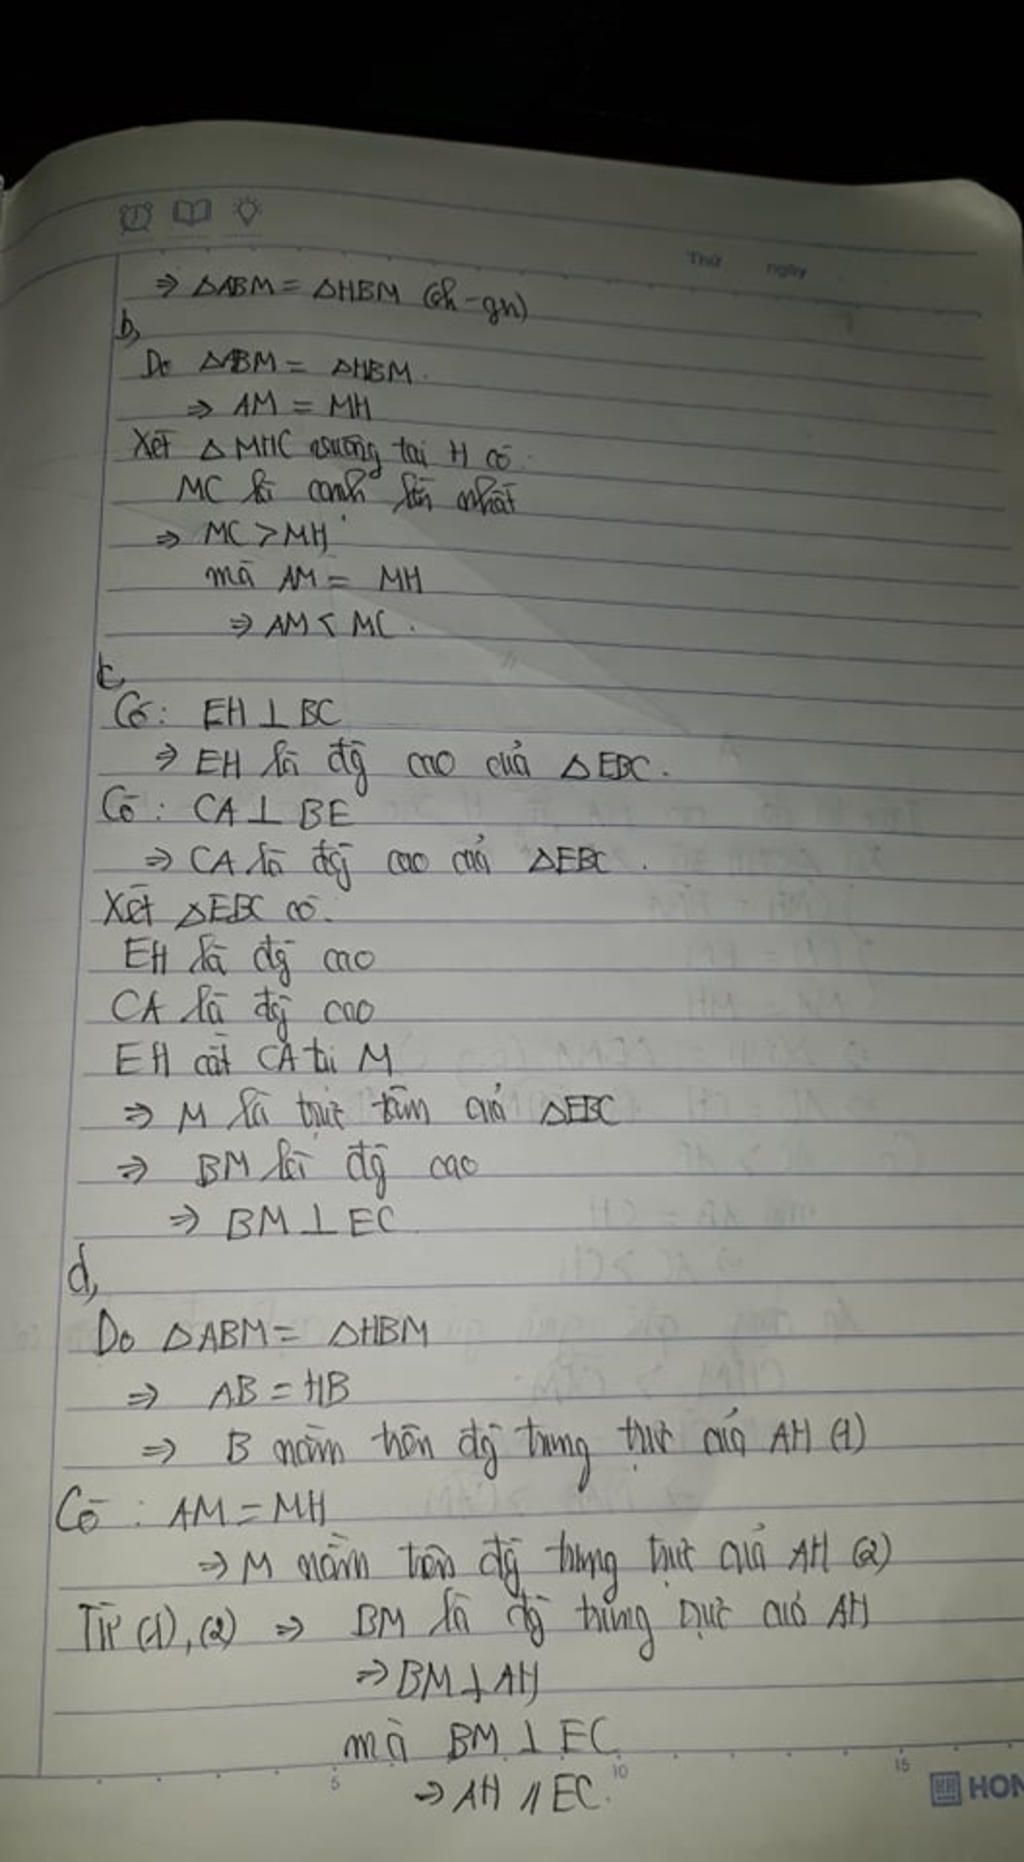 Thứ ngày
⇒ △ABM = △HBM (ch-gn)
b,
Do △ABM = △HBM.
⇒ AM = MH
Xét △MHC vuông tại H có:
MC là cạnh lớn nhất
⇒ MC > MH
mà AM = MH
⇒ AM < MC.
c,
Có: EH ⊥ BC
⇒ EH là đg cao của △EBC.
Có: CA ⊥ BE
⇒ CA là đg cao của △EBC.
Xét △EBC có:
EH là đg cao
CA là đg cao
EH cắt CA tại M
⇒ M là trực tâm của △EBC
⇒ BM là đg cao
⇒ BM ⊥ EC
d,
Do △ABM = △HBM
⇒ AB = HB
⇒ B nằm trên đg trung trực của AH (1)
Có: AM = MH
⇒ M nằm trên đg trung trực của AH (2)
Từ (1), (2) ⇒ BM là đg trung trực của AH
⇒ BM ⊥ AH
mà BM ⊥ EC
⇒ AH // EC.
5 10 15
HON